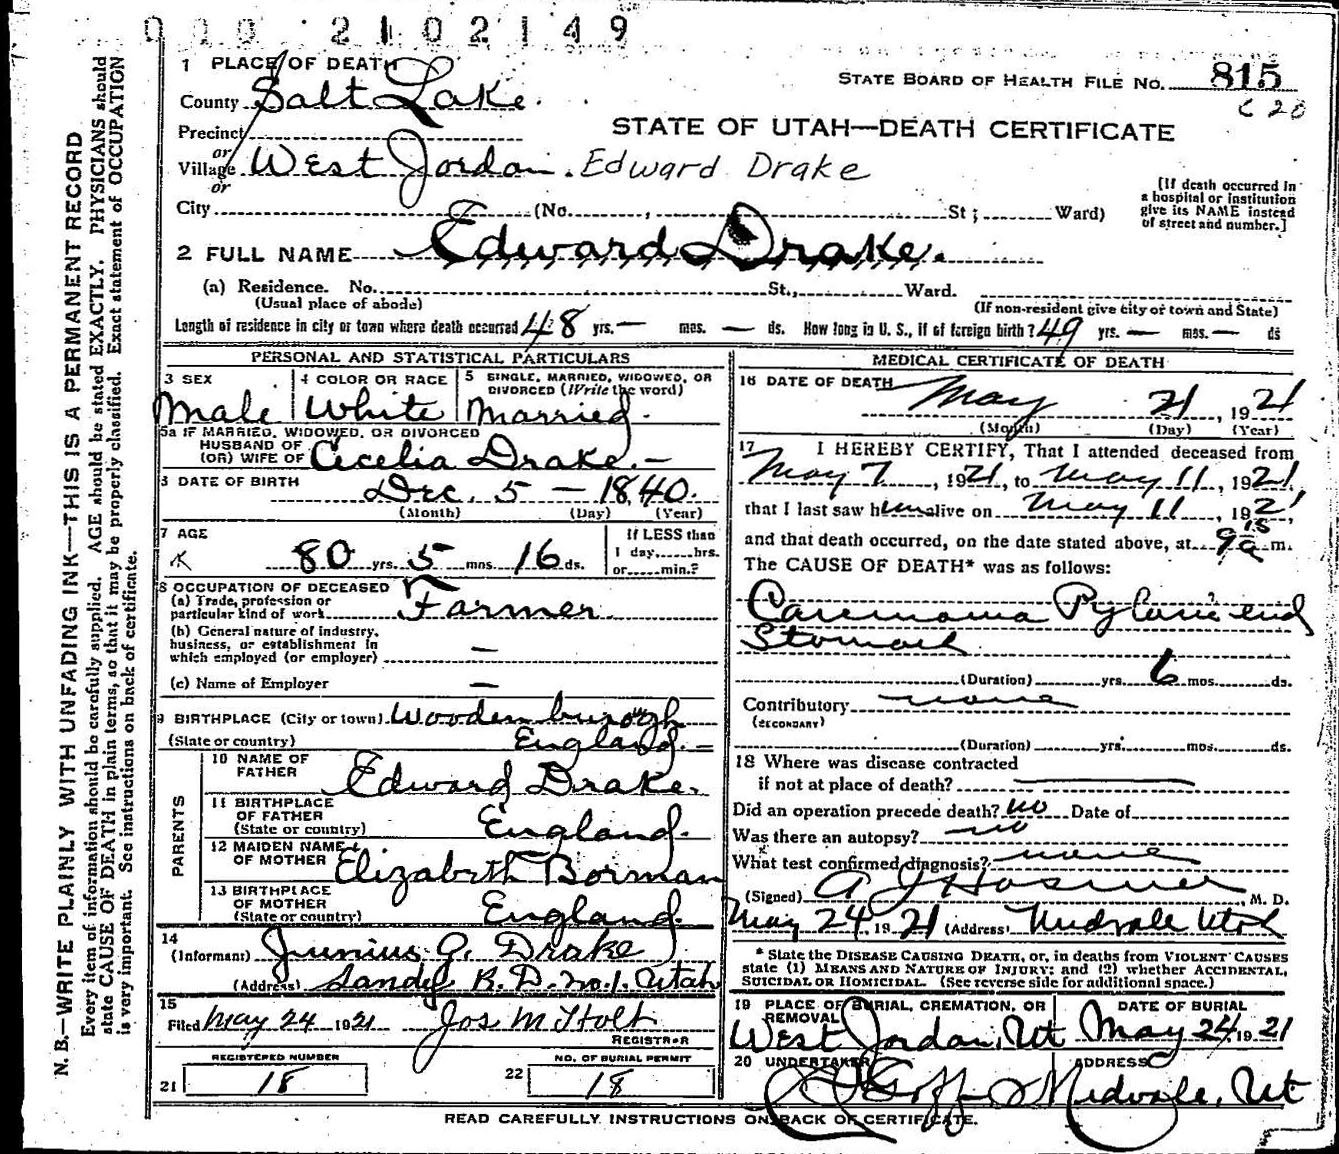 0 0 0 2 1 0 2 1 4 9
1 PLACE OF DEATH
STATE BOARD OF HEALTH FILE NO. 815
County Salt Lake.
C 20
Precinct
STATE OF UTAH—DEATH CERTIFICATE
or
Village West Jordan. Edward Drake
or
[If death occurred in
a hospital or institution
give its NAME instead
of street and number.]
City (No. , St ; Ward)
2 FULL NAME Edward Drake.
(a) Residence. No. St., Ward.
(Usual place of abode) (If non-resident give city or town and State)
Length of residence in city or town where death occurred 48 yrs. — mos. — ds. How long in U. S., if of foreign birth? 49 yrs. — mos. — ds
PERSONAL AND STATISTICAL PARTICULARS
3 SEX
Male
4 COLOR OR RACE
White
5 SINGLE, MARRIED, WIDOWED, OR
DIVORCED (Write the word)
Married.
5a IF MARRIED, WIDOWED, OR DIVORCED
HUSBAND OF
(OR) WIFE OF Cecelia Drake. —
DATE OF BIRTH Dec. 5 — 1840.
(Month) (Day) (Year)
7 AGE
80 yrs. 5 mos. 16 ds.
If LESS than
1 day, hrs.
or min.?
8 OCCUPATION OF DECEASED
(a) Trade, profession or
particular kind of work Farmer.
(b) General nature of industry,
business, or establishment in
which employed (or employer) —
(c) Name of Employer —
9 BIRTHPLACE (City or town) Woodenburough
(State or country) England. —
PARENTS
10 NAME OF
FATHER Edward Drake.
11 BIRTHPLACE
OF FATHER
(State or country) England.
12 MAIDEN NAME
OF MOTHER Elizabeth Borman
13 BIRTHPLACE
OF MOTHER
(State or country) England.
14
(Informant) Junius G. Drake
(Address) Sandy R. D. no. 1. Utah
15
Filed May 24 1921 Jos M Holt
REGISTRAR
REGISTERED NUMBER
21 18
NO. OF BURIAL PERMIT
22 18
MEDICAL CERTIFICATE OF DEATH
16 DATE OF DEATH May 21, 1921
(Month) (Day) (Year)
17 I HEREBY CERTIFY, That I attended deceased from
May 7, 1921, to May 11, 1921,
that I last saw him alive on May 11, 1921,
and that death occurred, on the date stated above, at 9 15 a m.
The CAUSE OF DEATH* was as follows:
Carcinoma Pyloric end
Stomach
(Duration) yrs. 6 mos. ds.
Contributory none
(SECONDARY)
(Duration) yrs. mos. ds.
18 Where was disease contracted
if not at place of death?
Did an operation precede death? no Date of
Was there an autopsy? no
What test confirmed diagnosis? none
(Signed) A J Hosmer, M. D.
May 24, 1921 (Address) Midvale Utah
* State the DISEASE CAUSING DEATH, or, in deaths from VIOLENT CAUSES
state (1) MEANS AND NATURE OF INJURY; and (2) whether ACCIDENTAL,
SUICIDAL OR HOMICIDAL. (See reverse side for additional space.)
19 PLACE OF BURIAL, CREMATION, OR
REMOVAL
West Jordan, Ut
DATE OF BURIAL
May 24, 1921
20 UNDERTAKER
Goff
ADDRESS
Midvale, Ut
READ CAREFULLY INSTRUCTIONS ON BACK OF CERTIFICATE.
N. B.—WRITE PLAINLY WITH UNFADING INK—THIS IS A PERMANENT RECORD
Every item of information should be carefully supplied. AGE should be stated EXACTLY. PHYSICIANS should
state CAUSE OF DEATH in plain terms, so that it may be properly classified. Exact statement of OCCUPATION
is very important. See instructions on back of certificate.